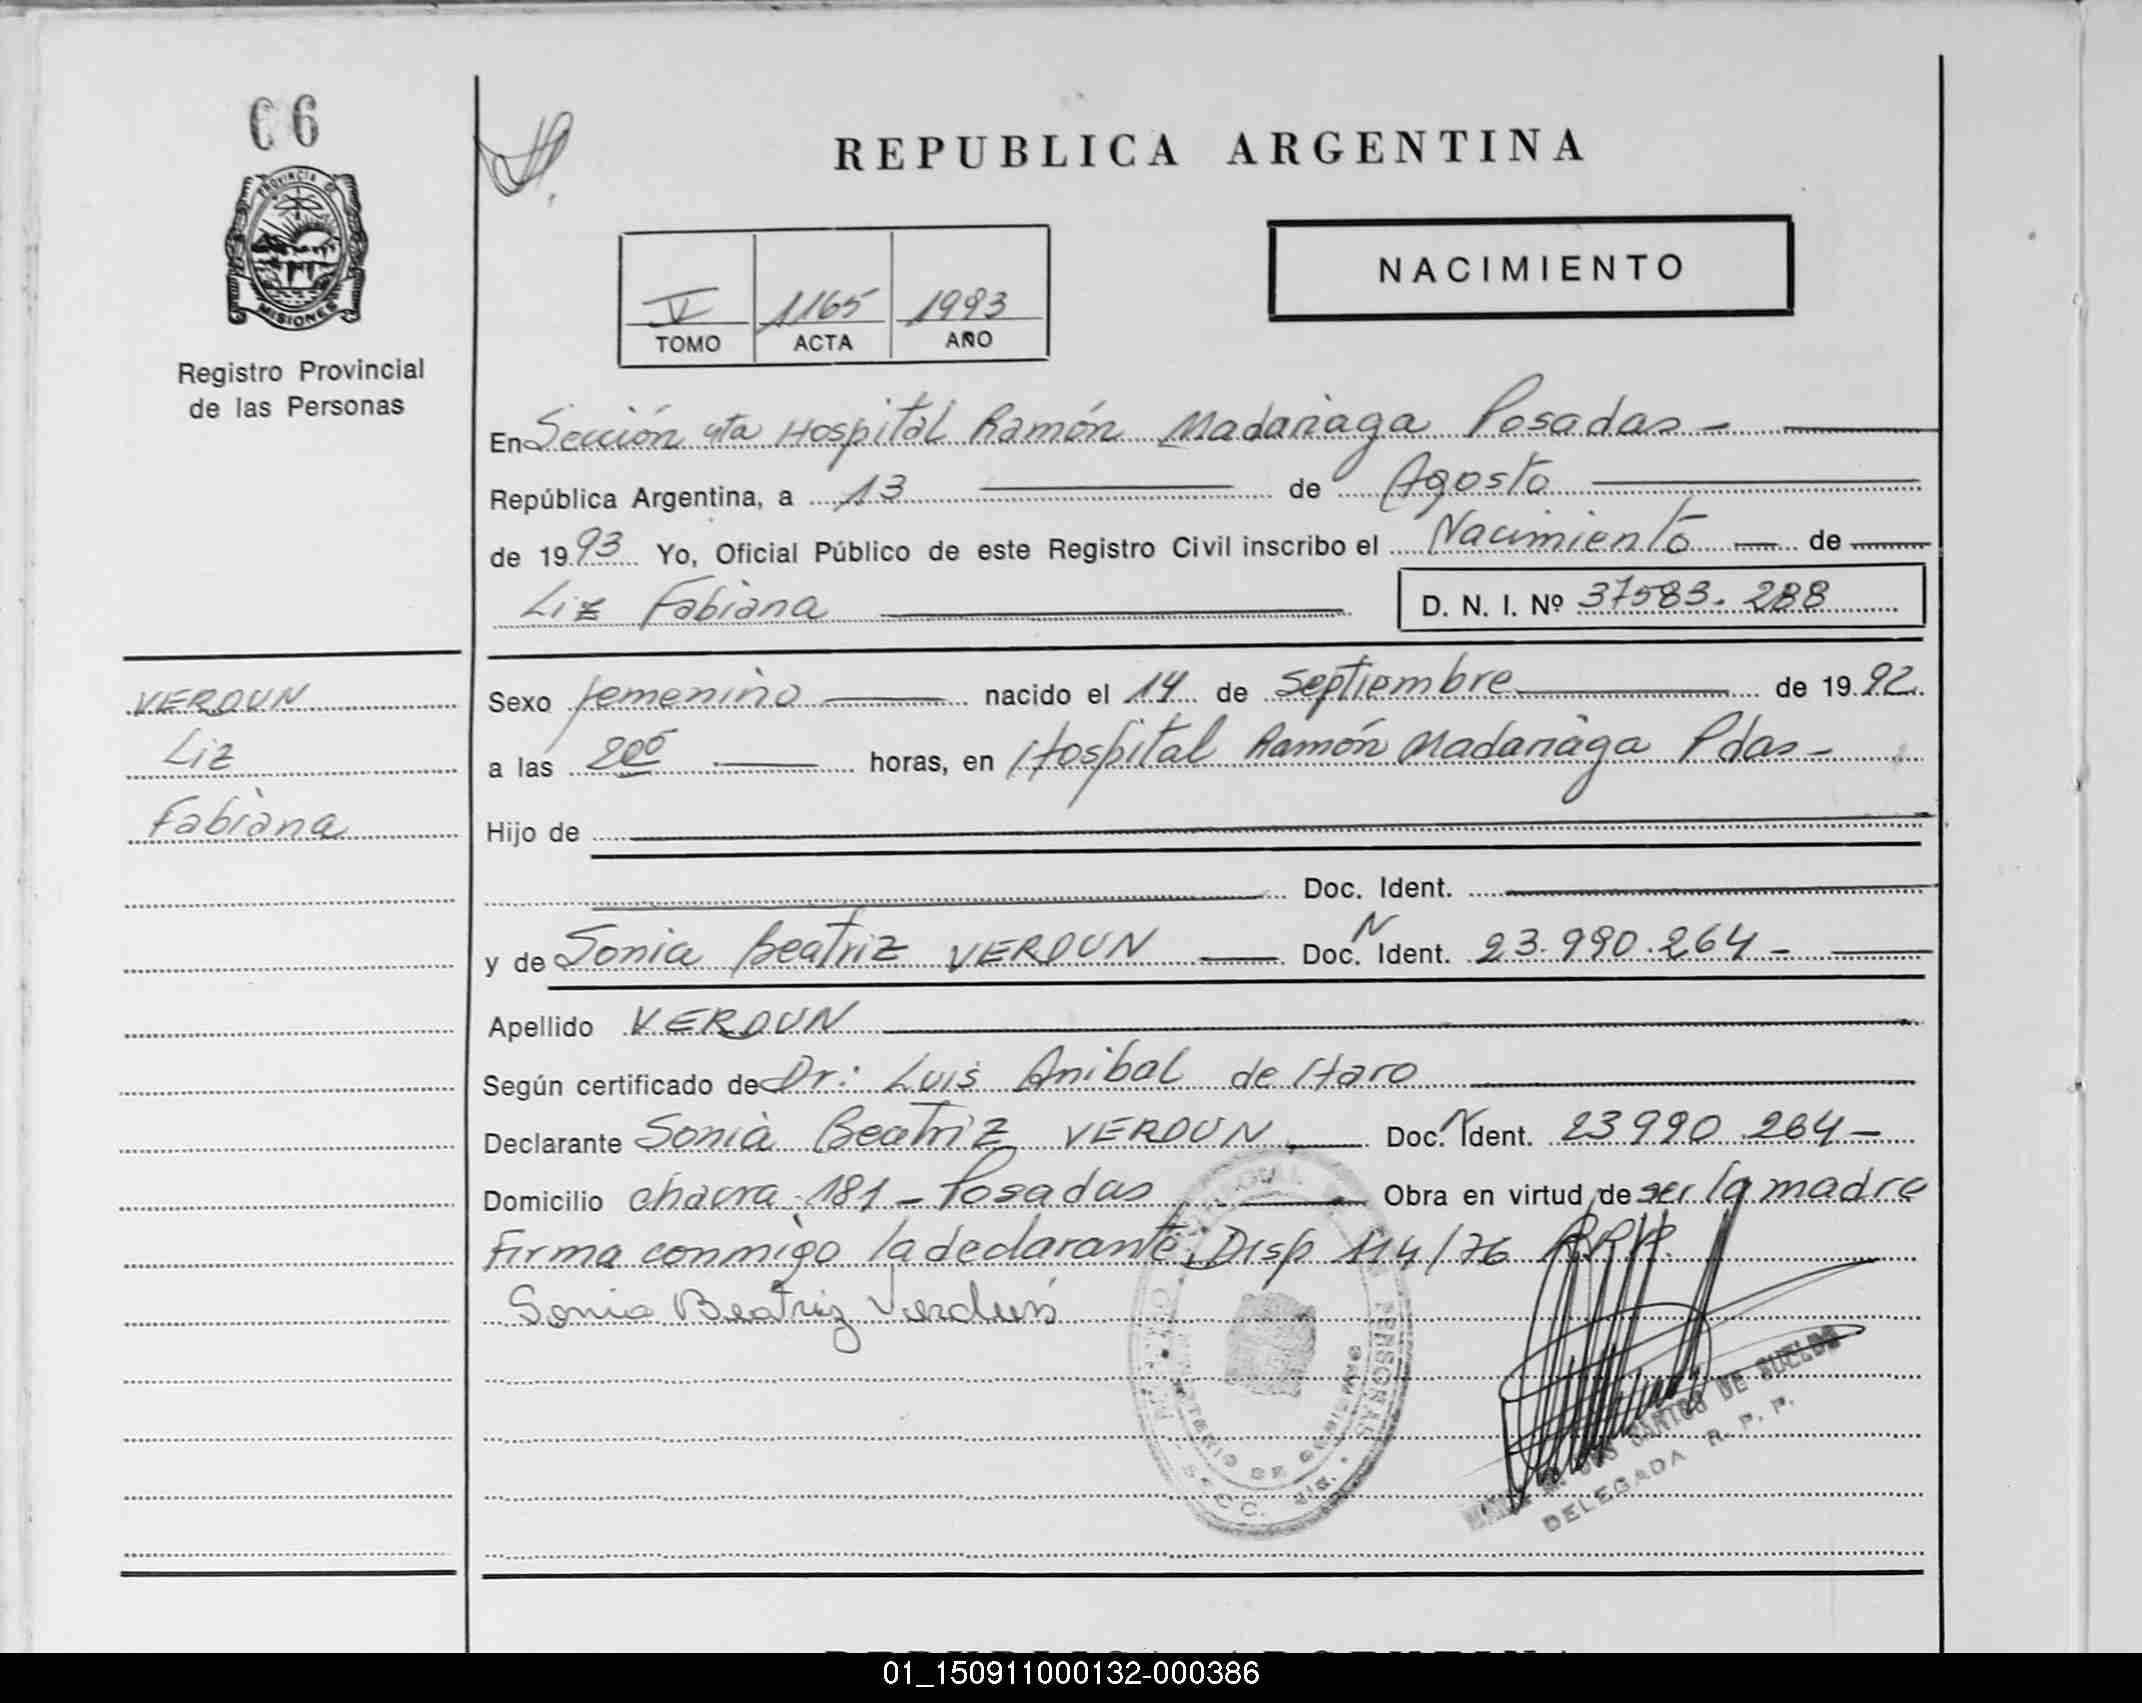 C6
PROVINCIA DE
MISIONES
Registro Provincial
de las Personas
REPUBLICA ARGENTINA
NACIMIENTO
V 1165 1993
TOMO ACTA AÑO
En Sección 4ta Hospital Ramón Madariaga Posadas -
República Argentina, a 13 de Agosto
de 1993 Yo, Oficial Público de este Registro Civil inscribo el Nacimiento de
Liz Fabiana D. N. I. Nº 37583.288
VERDUN
Liz
Fabiana
Sexo femenino nacido el 14 de septiembre de 1992
a las 20 05 horas, en Hospital Ramón Madariaga Pdas -
Hijo de
Doc. Ident.
y de Sonia Beatriz VERDUN Doc. N Ident. 23.990.264 -
Apellido VERDUN
Según certificado de Dr: Luis Anibal de Haro
Declarante Sonia Beatriz VERDUN Doc. N Ident. 23990 264 -
Domicilio chacra 181 - Posadas Obra en virtud de ser la madre
Firma conmigo la declarante. Disp 114/76 RPP.
Sonia Beatriz Verdun
PERSONAS
DE SUELDO
DELEGADA R. P. P.
01_150911000132-000386